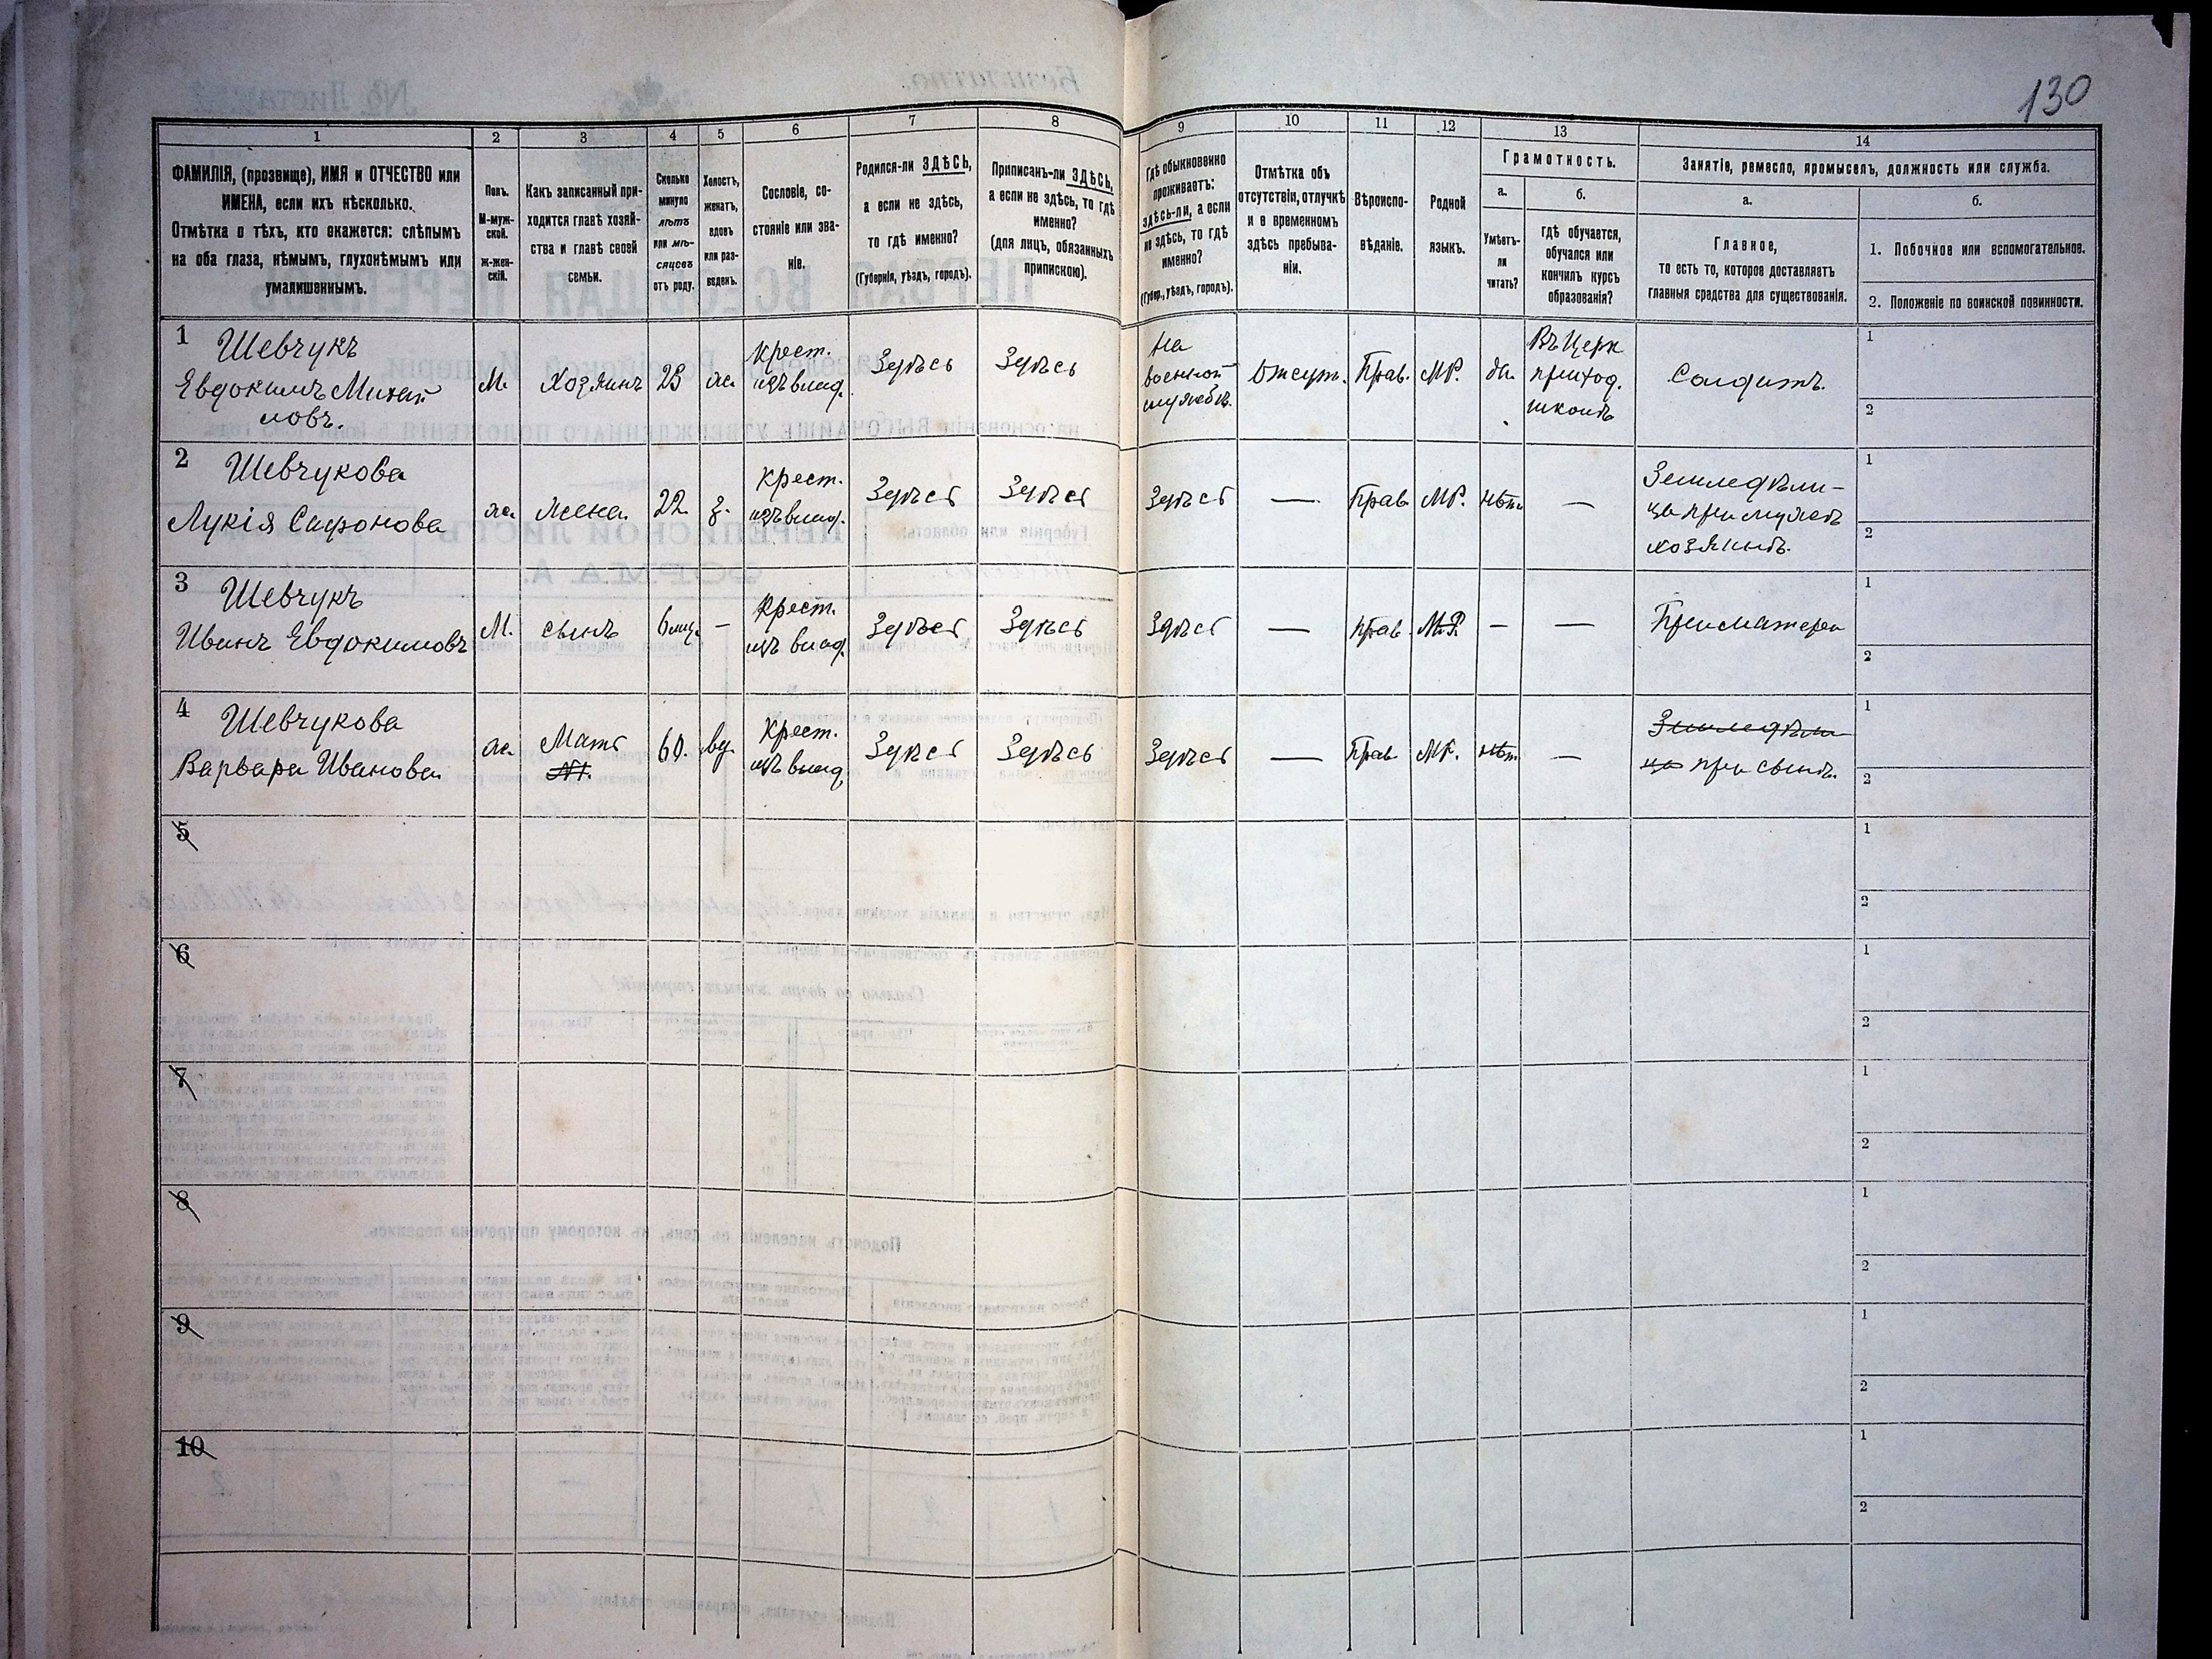 130
1
2
3
4
5
6
7
8
9
10
11
12
13
14
ФАМИЛІЯ, (прозвище), ИМЯ и ОТЧЕСТВО или
ИМЕНА, если ихъ нѣсколько.
Отмѣтка о тѣхъ, кто окажется: слѣпымъ
на оба глаза, нѣмымъ, глухонѣмымъ или
умалишеннымъ.
Полъ.
М-муж-
ской.
ж-жен-
скій.
Какъ записанный при-
ходится главѣ хозяй-
ства и главѣ своей
семьи.
Сколько
минуло
лѣтъ
или мѣ-
сяцевъ
отъ роду.
Холостъ,
женатъ,
вдовъ
или раз-
веденъ.
Сословіе, со-
стояніе или зва-
ніе.
Родился-ли ЗДѢСЬ,
а если не здѣсь,
то гдѣ именно?
(Губернія, уѣздъ, городъ).
Приписанъ-ли ЗДѢСЬ,
а если не здѣсь, то гдѣ
именно?
(для лицъ, обязанныхъ
припискою).
Гдѣ обыкновенно
проживаетъ:
здѣсь-ли, а если
не здѣсь, то гдѣ
именно?
(Губер., уѣздъ, городъ).
Отмѣтка объ
отсутствіи, отлучкѣ
и о временномъ
здѣсь пребыва-
ніи.
Вѣроиспо-
вѣданіе.
Родной
языкъ.
Грамотность.
а.
Умѣетъ-
ли
читать?
б.
гдѣ обучается,
обучался или
кончилъ курсъ
образованія?
Занятіе, ремесло, промыселъ, должность или служба.
а.
Главное,
то есть то, которое доставляетъ
главныя средства для существованія.
б.
1. Побочное или вспомогательное.
2. Положеніе по воинской повинности.
1
Шевчукъ
Евдокимъ Михай
ловъ.
М.
Хозяинъ
23
ж.
крест.
изъ влад.
Здѣсь
Здѣсь
на
военной
службѣ.
Отсут.
Прав.
МР.
да.
Въ Церк
приход.
школѣ
Солдатъ.
1
2
2
Шевчукова
Лукія Сафонова
ж.
жена.
22.
з.
крест.
изъ влад.
Здѣсь
Здѣсь
Здѣсь
—
Прав
МР.
нѣтъ
—
Земледѣли-
ца при мужѣ
хозяинѣ.
1
2
3
Шевчукъ
Иванъ Евдокимовъ
М.
сынъ
6 мц.
—
крест.
изъ влад.
Здѣсь
Здѣсь
Здѣсь
—
Прав.
М.Р.
—
—
При матери
1
2
4
Шевчукова
Варвара Иванова
ж.
Мать
№1.
60.
вд.
крест.
изъ влад.
Здѣсь
Здѣсь
Здѣсь
—
Прав.
МР.
нѣтъ
—
Земледѣли-
ца при сынѣ.
1
2
5
1
2
6
1
2
7
1
2
8
1
2
9
1
2
10
1
2